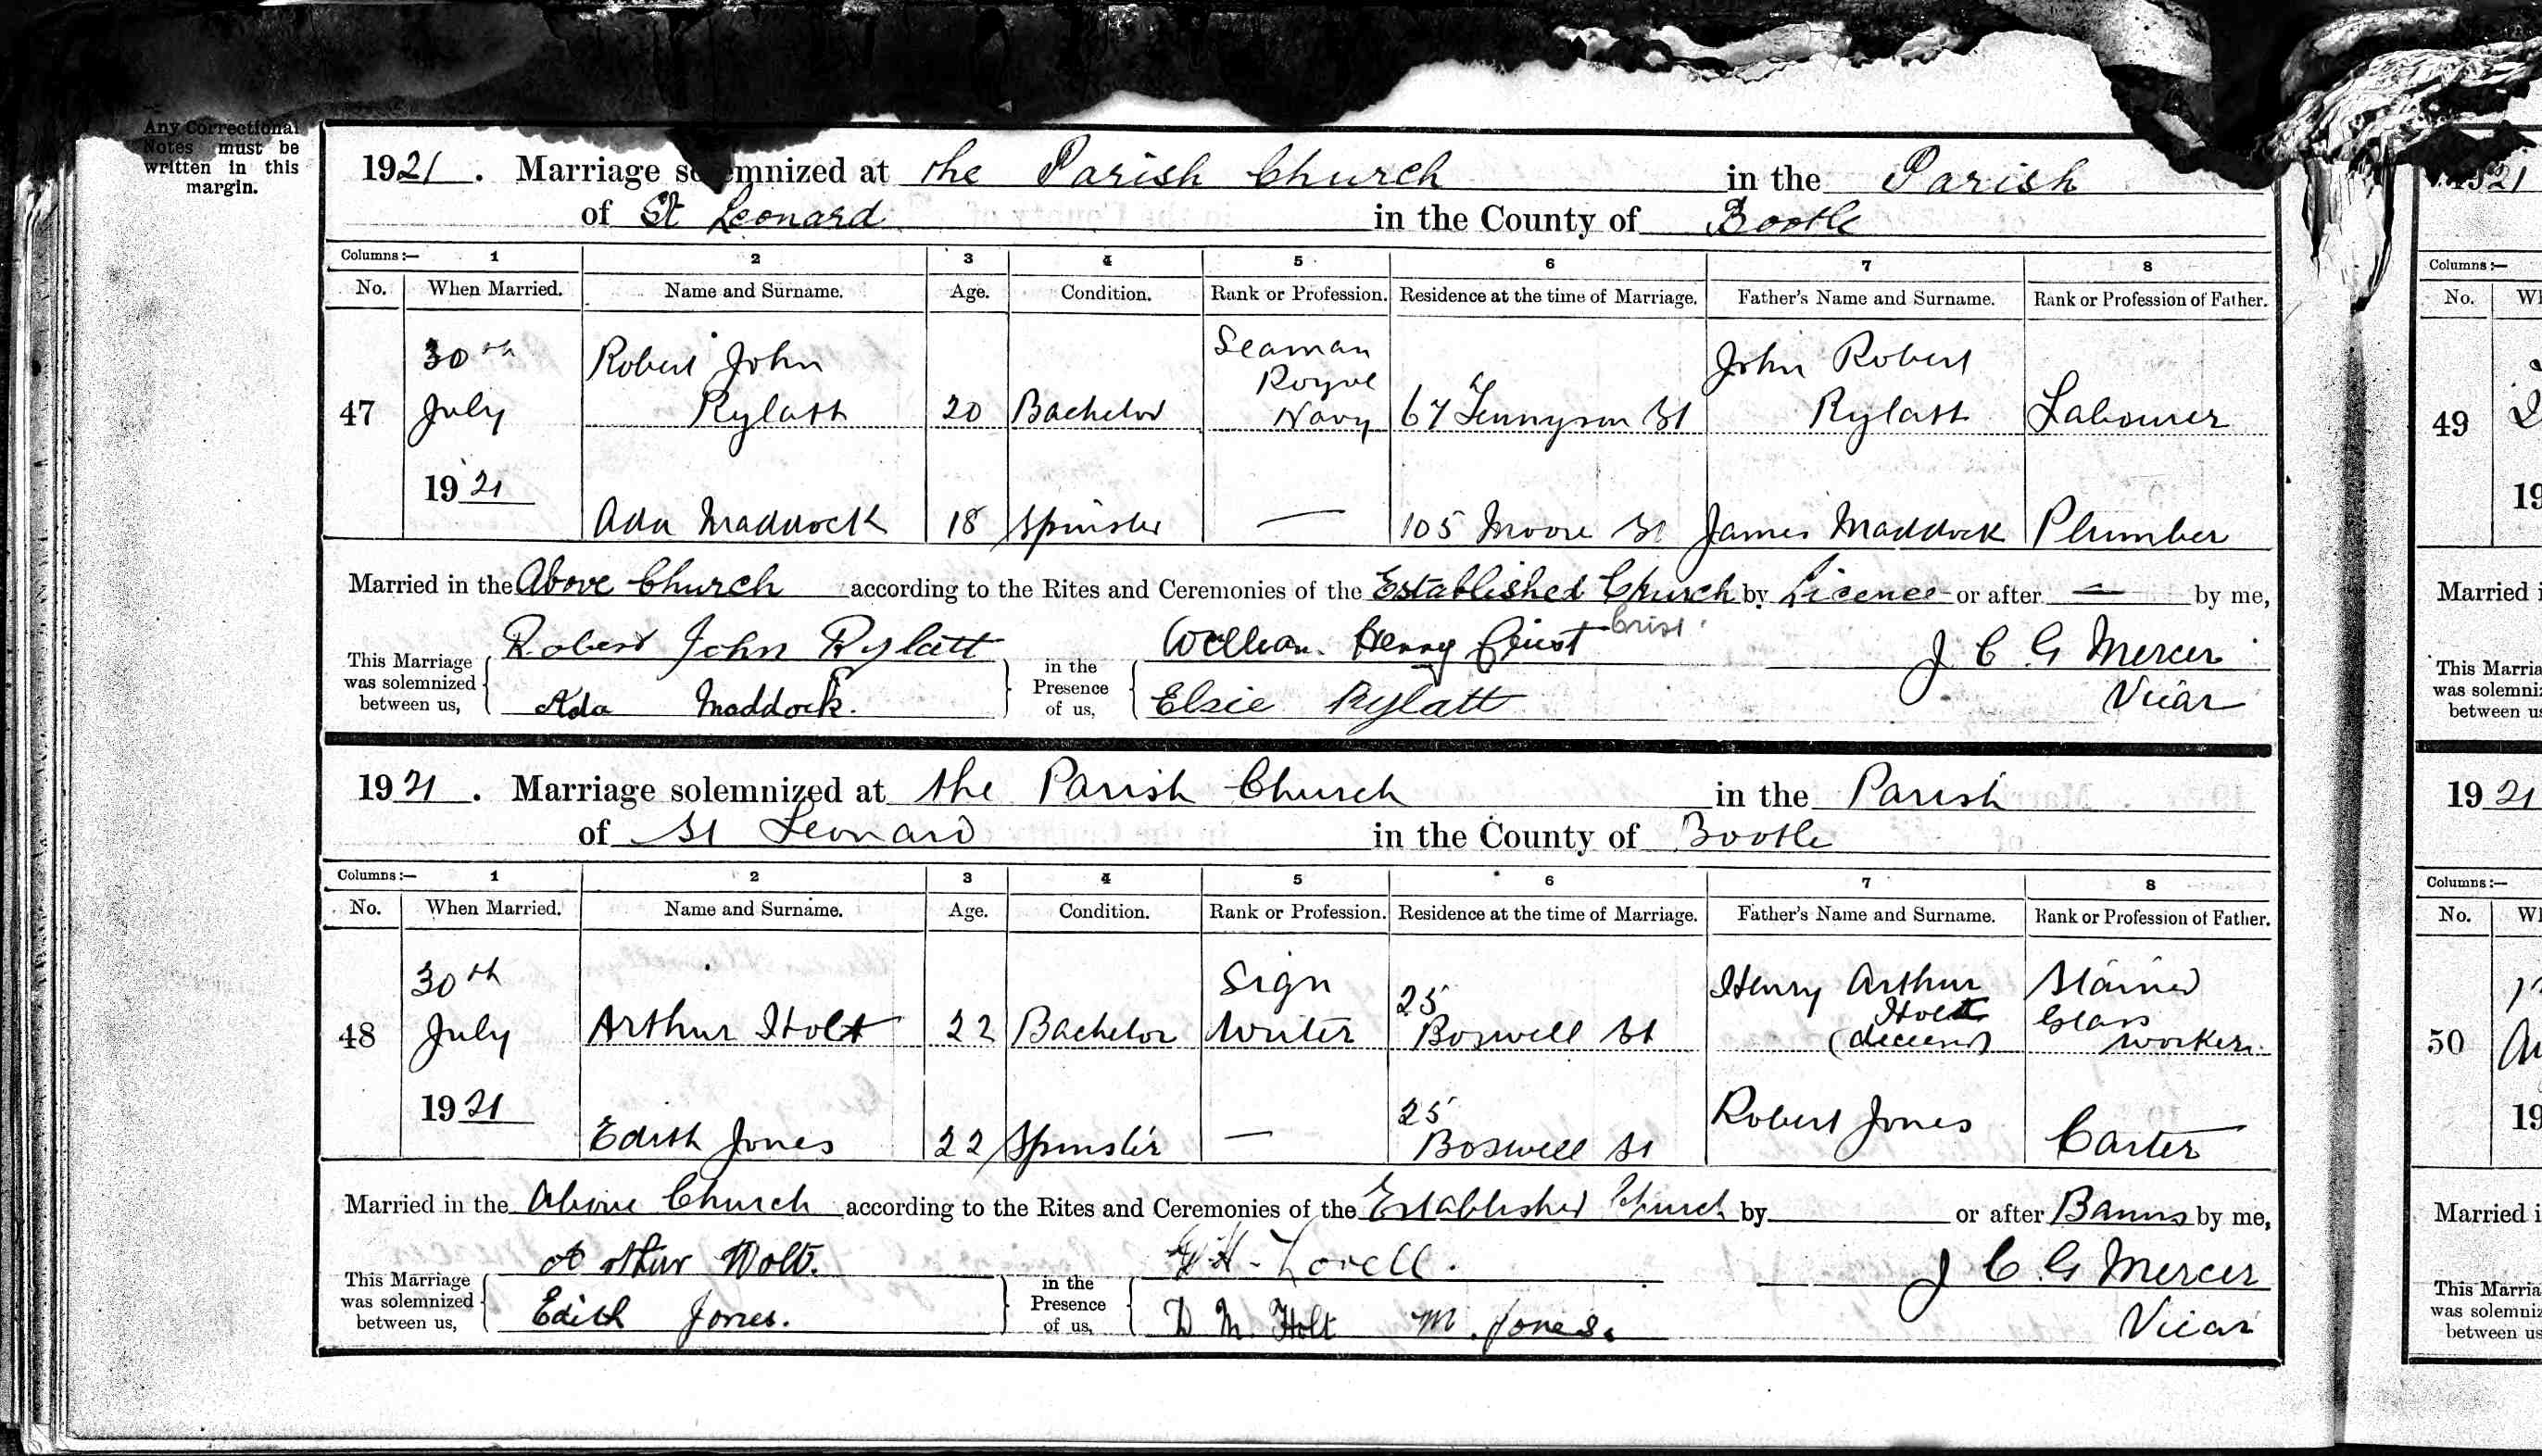 Any Correctional
Notes must be
written in this
margin.
1921. Marriage solemnized at the Parish Church in the Parish
of St Leonard in the County of Bootle
Columns:— 1 2 3 4 5 6 7 8
No. When Married. Name and Surname. Age. Condition. Rank or Profession. Residence at the time of Marriage. Father's Name and Surname. Rank or Profession of Father.
47 30th July 1921 Robert John Rylatt 20 Bachelor Seaman Royal Navy 67 Tennyson St John Robert Rylatt Labourer
Ada Maddock 18 Spinster — 105 Moore St James Maddock Plumber
Married in the Above Church according to the Rites and Ceremonies of the Established Church by Licence or after — by me,
This Marriage was solemnized between us, Robert John Rylatt in the Presence of us, William Henry Crist Crist J C G Mercer
Ada Maddock. Elsie Rylatt Vicar
1921. Marriage solemnized at the Parish Church in the Parish
of St Leonard in the County of Bootle
Columns:— 1 2 3 4 5 6 7 8
No. When Married. Name and Surname. Age. Condition. Rank or Profession. Residence at the time of Marriage. Father's Name and Surname. Rank or Profession of Father.
48 30th July 1921 Arthur Holt 22 Bachelor Sign Writer 25 Boswell St Henry Arthur Holt (deceased) Stained Glass Worker.
Edith Jones 22 Spinster — 25 Boswell St Robert Jones Carter
Married in the Above Church according to the Rites and Ceremonies of the Established Church by or after Banns by me,
This Marriage was solemnized between us, Arthur Holt. in the Presence of us, Lovell. J C G Mercer
Edith Jones. D M Holt M. Jones. Vicar
1921
Columns:—
No.
49
19
Married
This
was
between
1921
Columns:—
No.
50
19
Married
This
was
between